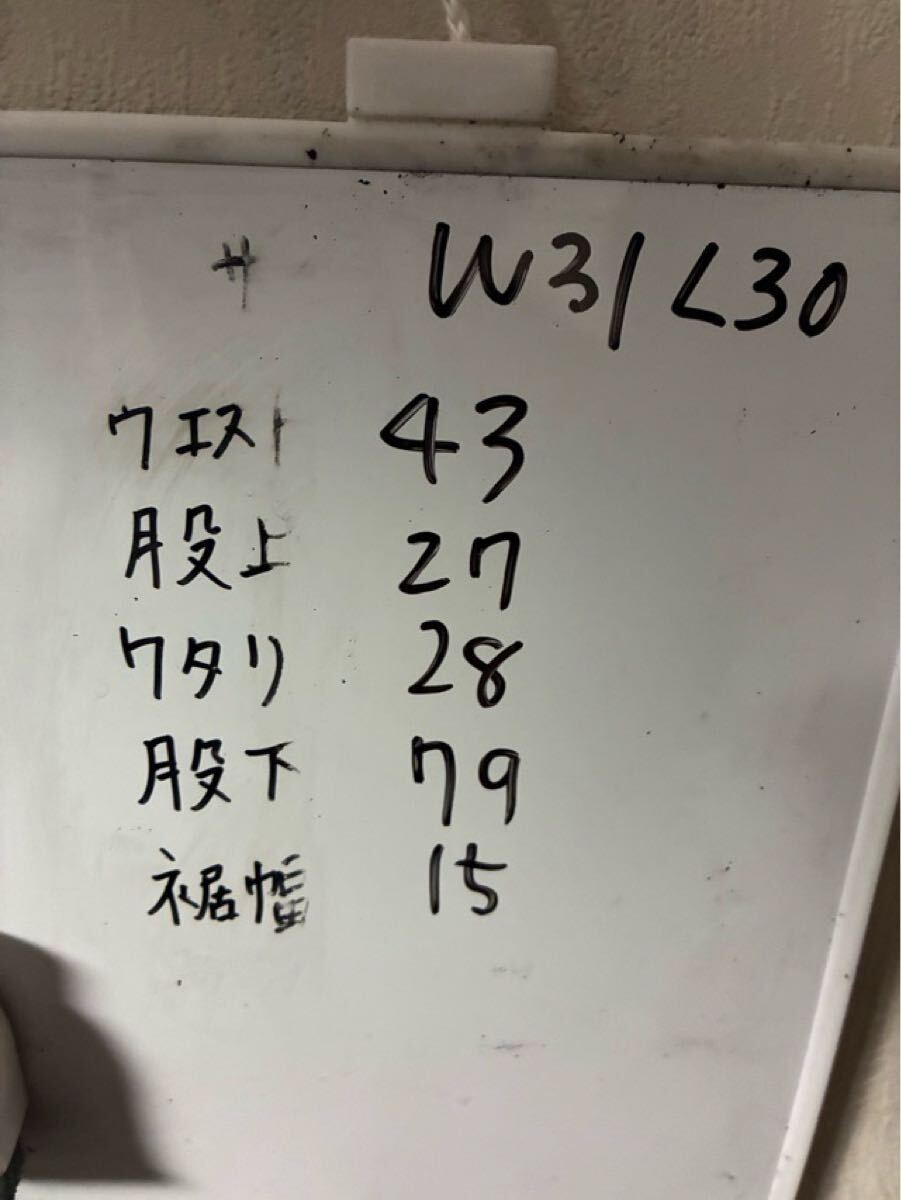 サ W31 L30
ウエスト 43
股上 27
ワタリ 28
股下 79
裾幅 15